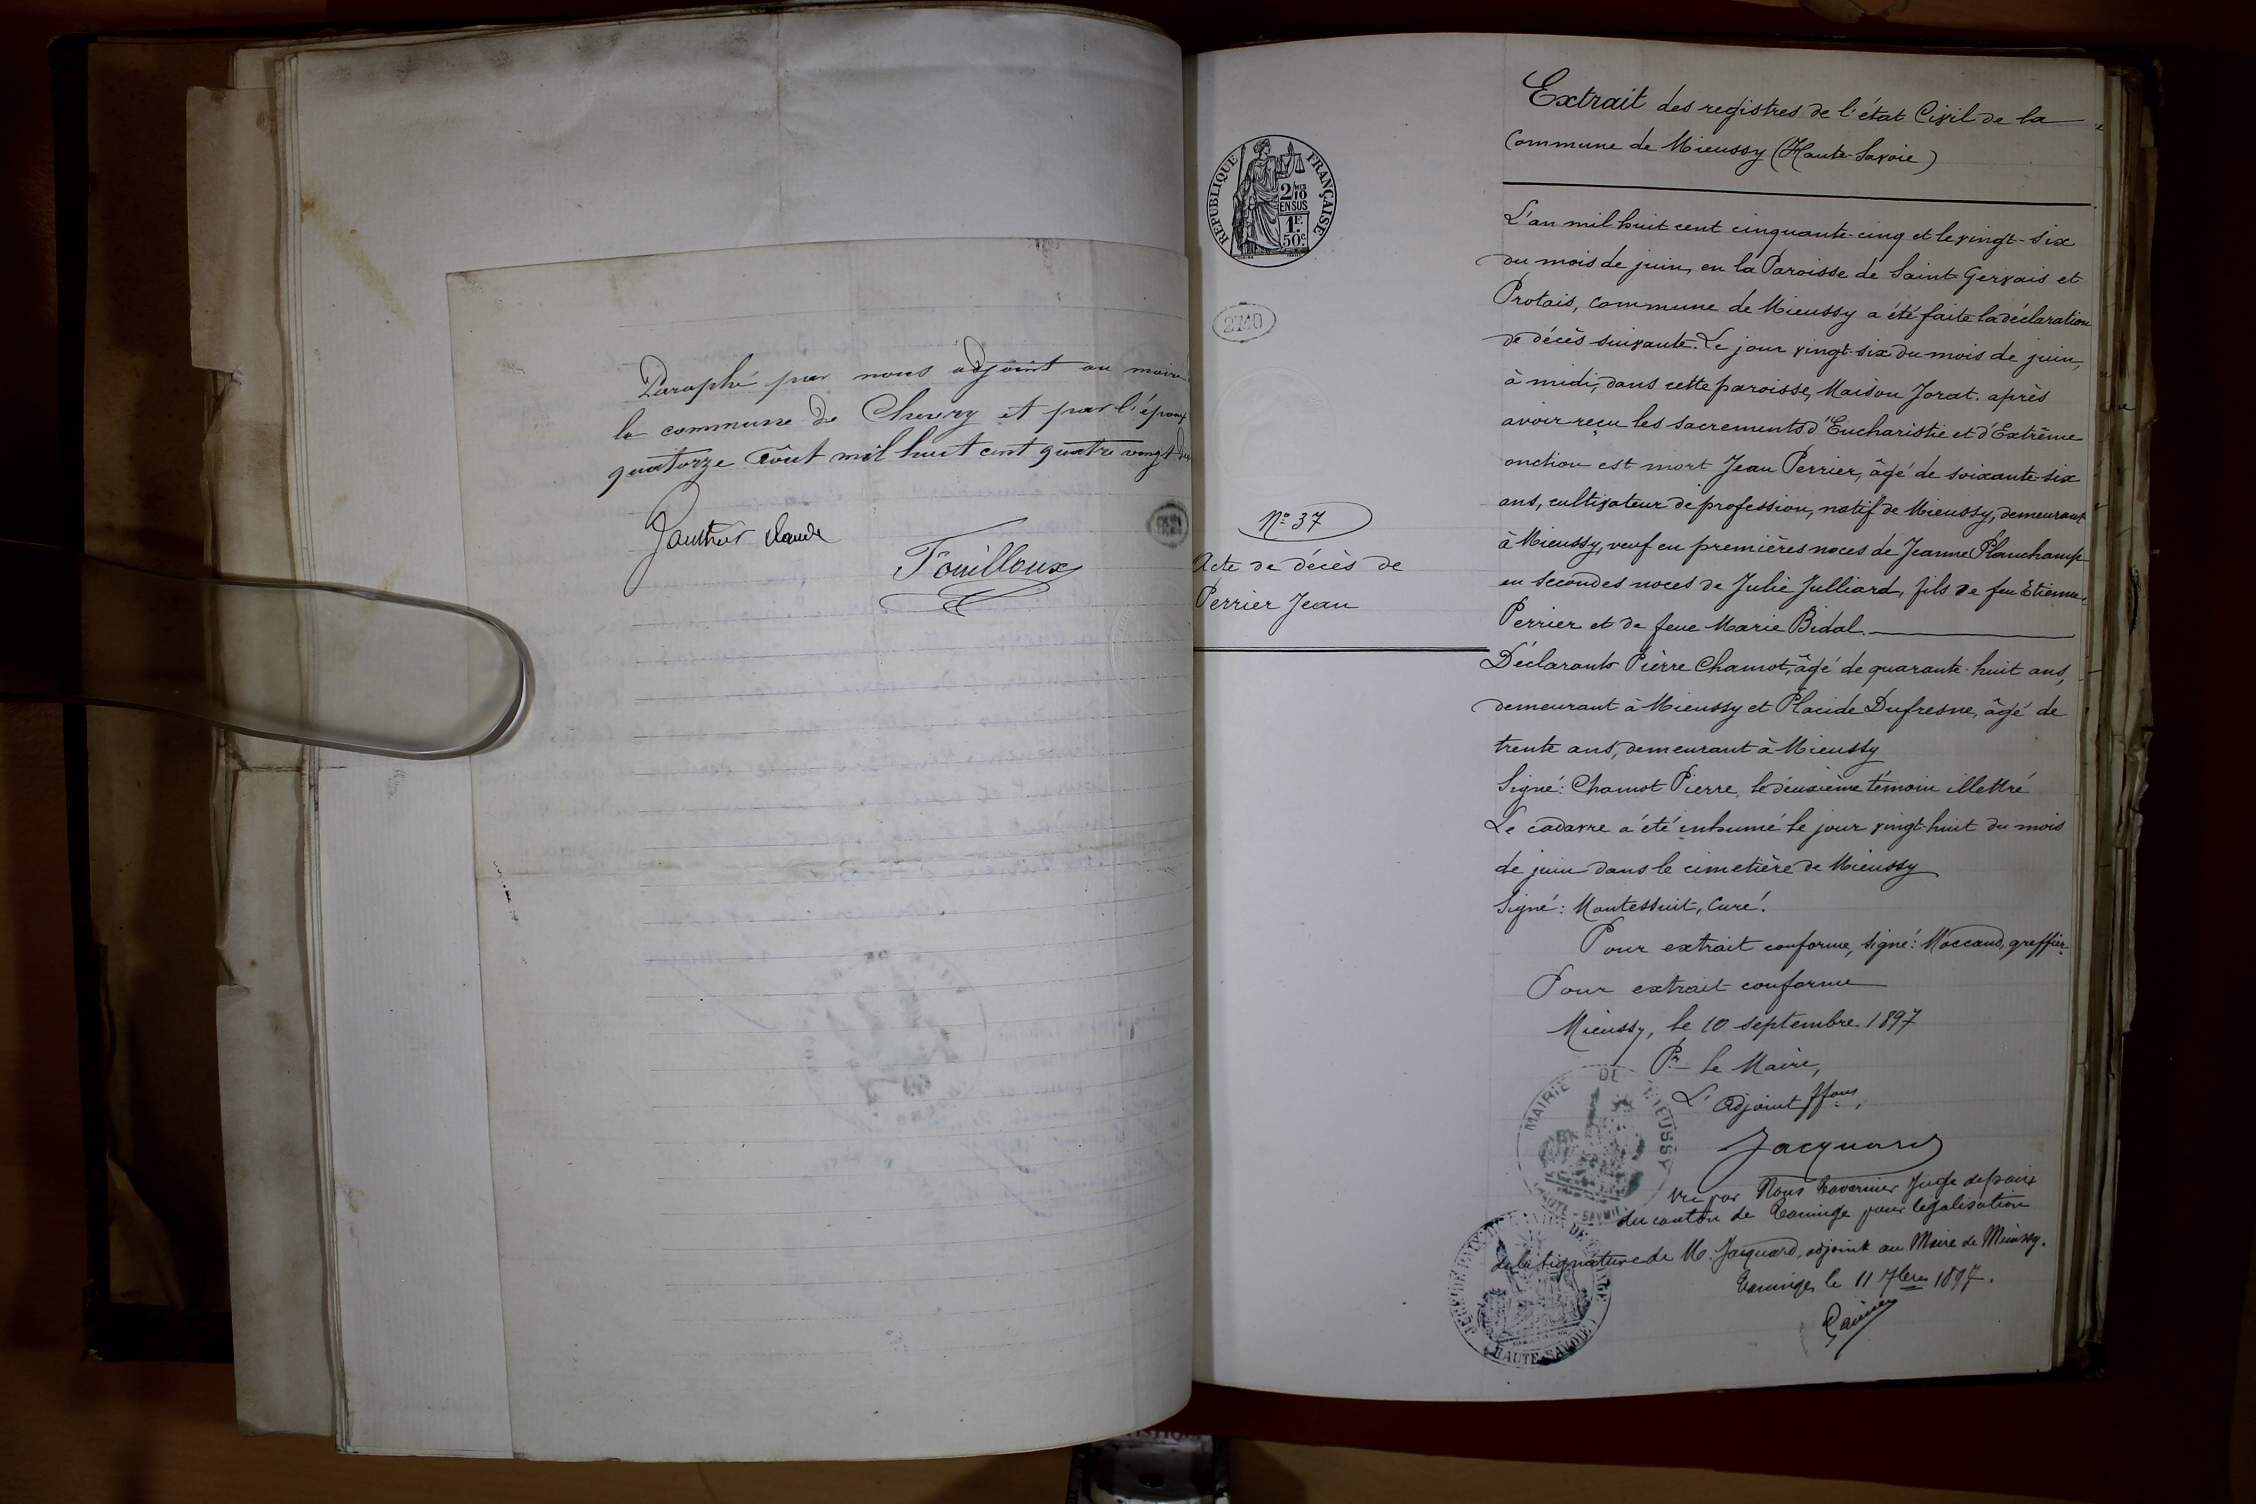 Paraphé par nous adjoint au maire
la commune de Chevry et par l'époux
quatorze Août mil huit cent quatre vingt
Gauthier Claude
Fouilloux
REPUBLIQUE FRANÇAISE
2/10
EN SUS
1F.
50c.
2740
N° 37
Acte de décès de
Perrier Jean
Extrait des registres de l'état Civil de la
Commune de Mieussy (Haute-Savoie)
L'an mil huit cent cinquante-cinq et le vingt-six
du mois de juin, en la Paroisse de Saint Gervais et
Protais, commune de Mieussy a été faite la déclaration
de décès suivante. Le jour vingt-six du mois de juin,
à midi, dans cette paroisse, Maison Jorat. après
avoir reçu les sacrements d'Eucharistie et d'Extrême
onction est mort Jean Perrier, âgé de soixante-six
ans, cultivateur de profession, natif de Mieussy, demeurant
à Mieussy, veuf en premières noces de Jeanne Plauchamp
en secondes noces de Julie Julliard, fils de feu Etienne
Perrier et de feue Marie Bidal.
Déclarants Pièrre Chamot, âgé de quarante-huit ans,
demeurant à Mieussy et Placide Dufresne, âgé de
trente ans, demeurant à Mieussy
Signé: Chamot Pierre, le deuxième témoin illettré
Le cadavre a été inhumé le jour vingt-huit du mois
de juin dans le cimetière de Mieussy
Signé: Montessuit, Curé.
Pour extrait conforme, signé: Maccand, greffier.
Pour extrait conforme
Mieussy, le 10 septembre 1897
Pr le Maire,
L'adjoint ffons,
MAIRIE DE MIEUSSY
HAUTE-SAVOIE
Jacquard
Vu par Nous Tavernier Juge de paix
du canton de Taninge pour légalisation
de la signature de M. Jacquard, adjoint au Maire de Mieussy.
Taninges le 11 7bre 1897.
HAUTE-SAVOIE